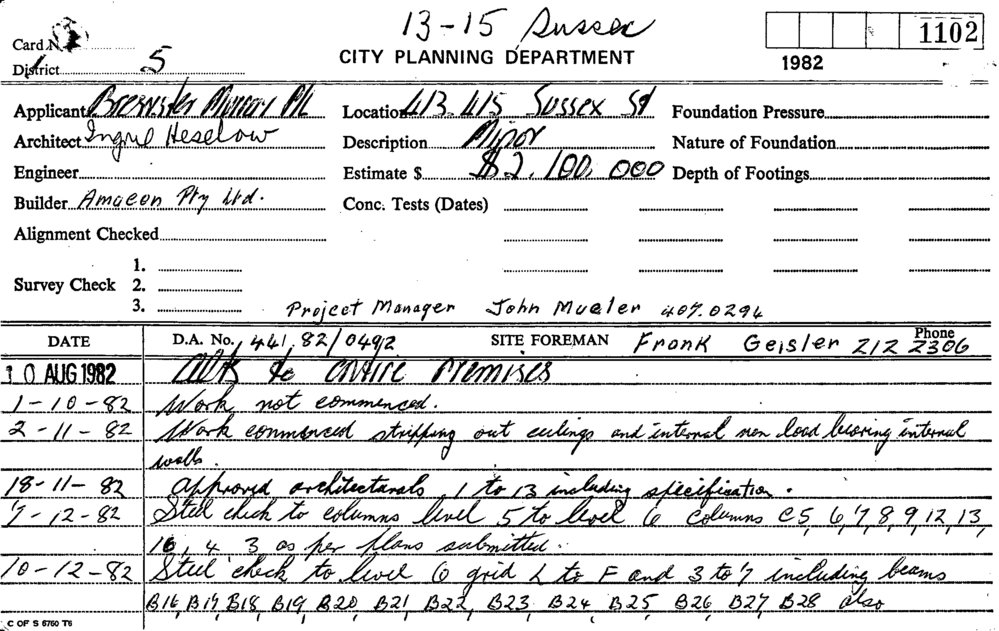 13-15 Sussex
Card N
CITY PLANNING DEPARTMENT
1102
1982
District 5
Applicant Brewster Murray P/L
Location 413-415 Sussex St
Foundation Pressure
Architect Ingrid Heselow
Description Minor
Nature of Foundation
Engineer
Estimate $ $2,100,000
Depth of Footings
Builder Amacon Pty Ltd.
Conc. Tests (Dates)
Alignment Checked
Survey Check
1.
2.
3.
Project Manager John Mueler 407.0294
DATE D.A. No. 441, 82/0492 SITE FOREMAN Frank Geisler Phone 212 2306
10 AUG 1982 Alts to entire Premises
1-10-82 Work not commenced.
2-11-82 Work commenced stripping out ceilings and internal non load bearing internal
walls.
18-11-82 approved architecturals 1 to 13 including specification.
7-12-82 Steel check to columns level 5 to level 6 columns C5, 6, 7, 8, 9, 12, 13,
10, 4, 3 as per plans submitted.
10-12-82 Steel check to level 6 grid L to F and 3 to 7 including beams
B16, B17, B18, B19, B20, B21, B22, B23, B24, B25, B26, B27, B28 also
C OF S 6760 T6